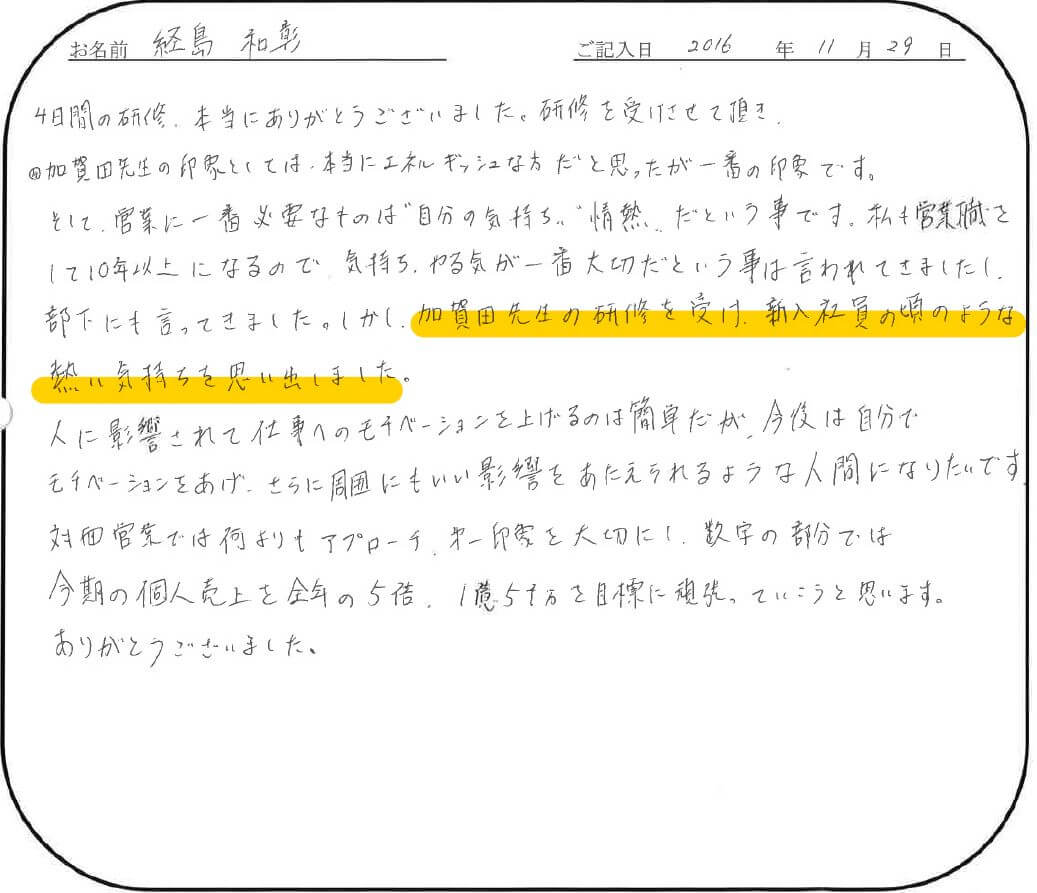 お名前 経島 和彰 ご記入日 2016 年 11 月 29 日
4日間の研修、本当にありがとうございました。研修を受けさせて頂き、
加賀田先生の印象としては、本当にエネルギッシュな方だと思ったが一番の印象です。
そして、営業に一番必要なものは"自分の気持ち"、"情熱"、だという事です。私も営業職を
して10年以上になるので、気持ち、やる気が一番大切だという事は言われてきましたし、
部下にも言ってきました。しかし、加賀田先生の研修を受け、新入社員の頃のような
熱い気持ちを思い出しました。
人に影響されて仕事へのモチベーションを上げるのは簡単だが、今後は自分で
モチベーションをあげ、さらに周囲にもいい影響をあたえられるような人間になりたいです。
対面営業では何よりもアプローチ、第一印象を大切にし、数字の部分では
今期の個人売上を去年の5倍、1億5千万を目標に頑張っていこうと思います。
ありがとうございました。